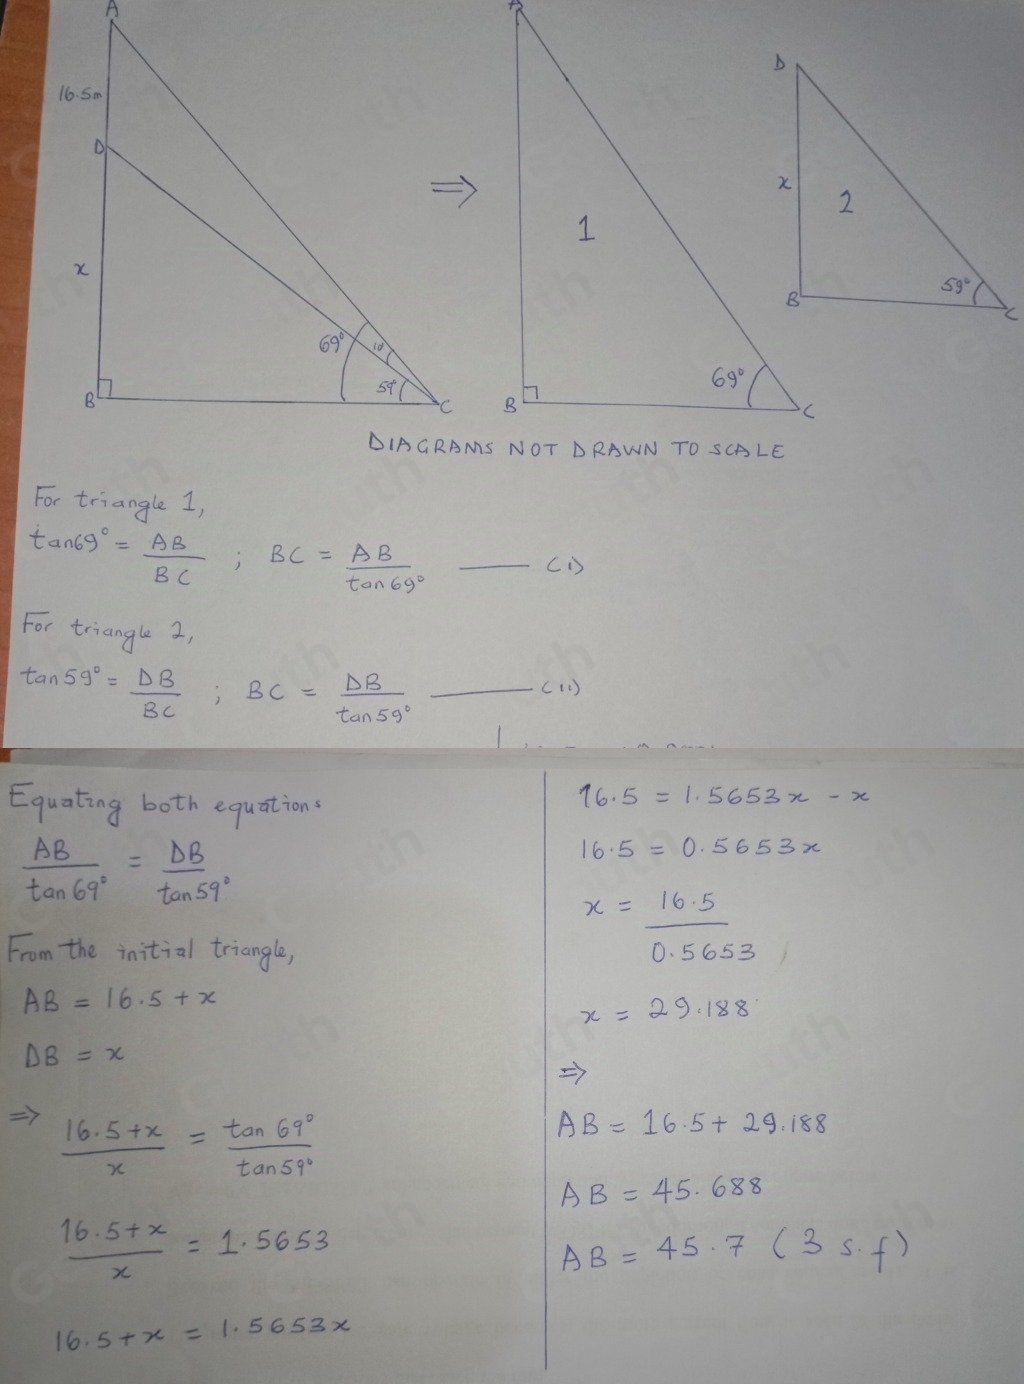 A
16.5m
D
x
B
69°
10°
59°
C
⇒
1
B
69°
C
D
x
2
B
59°
C
DIAGRAMS NOT DRAWN TO SCALE
For triangle 1,
tan69° = AB/BC ; BC = AB/tan69° —— (i)
For triangle 2,
tan59° = DB/BC ; BC = DB/tan59° —— (ii)
Equating both equations
AB/tan69° = DB/tan59°
From the initial triangle,
AB = 16.5 + x
DB = x
⇒ 16.5+x/x = tan 69°/tan59°
16.5+x/x = 1.5653
16.5+x = 1.5653x
16.5 = 1.5653x - x
16.5 = 0.5653x
x = 16.5/0.5653
x = 29.188
⇒
AB = 16.5 + 29.188
AB = 45.688
AB = 45.7 (3 s.f)